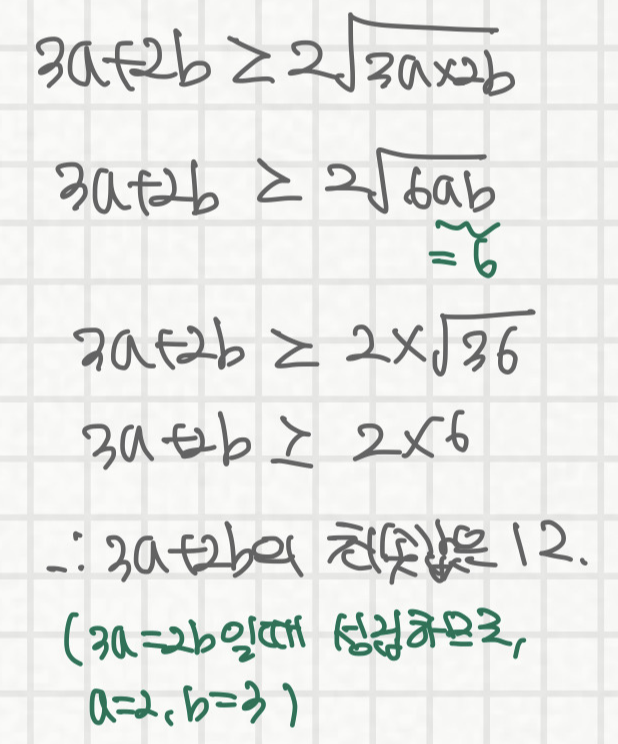 3a+2b ≥ 2√(3a×2b)
3a+2b ≥ 2√(6ab)
= 6
3a+2b ≥ 2×√36
3a+2b ≥ 2×6
∴ 3a+2b의 최솟값은 12.
(3a=2b일때 성립하므로,
a=2, b=3)